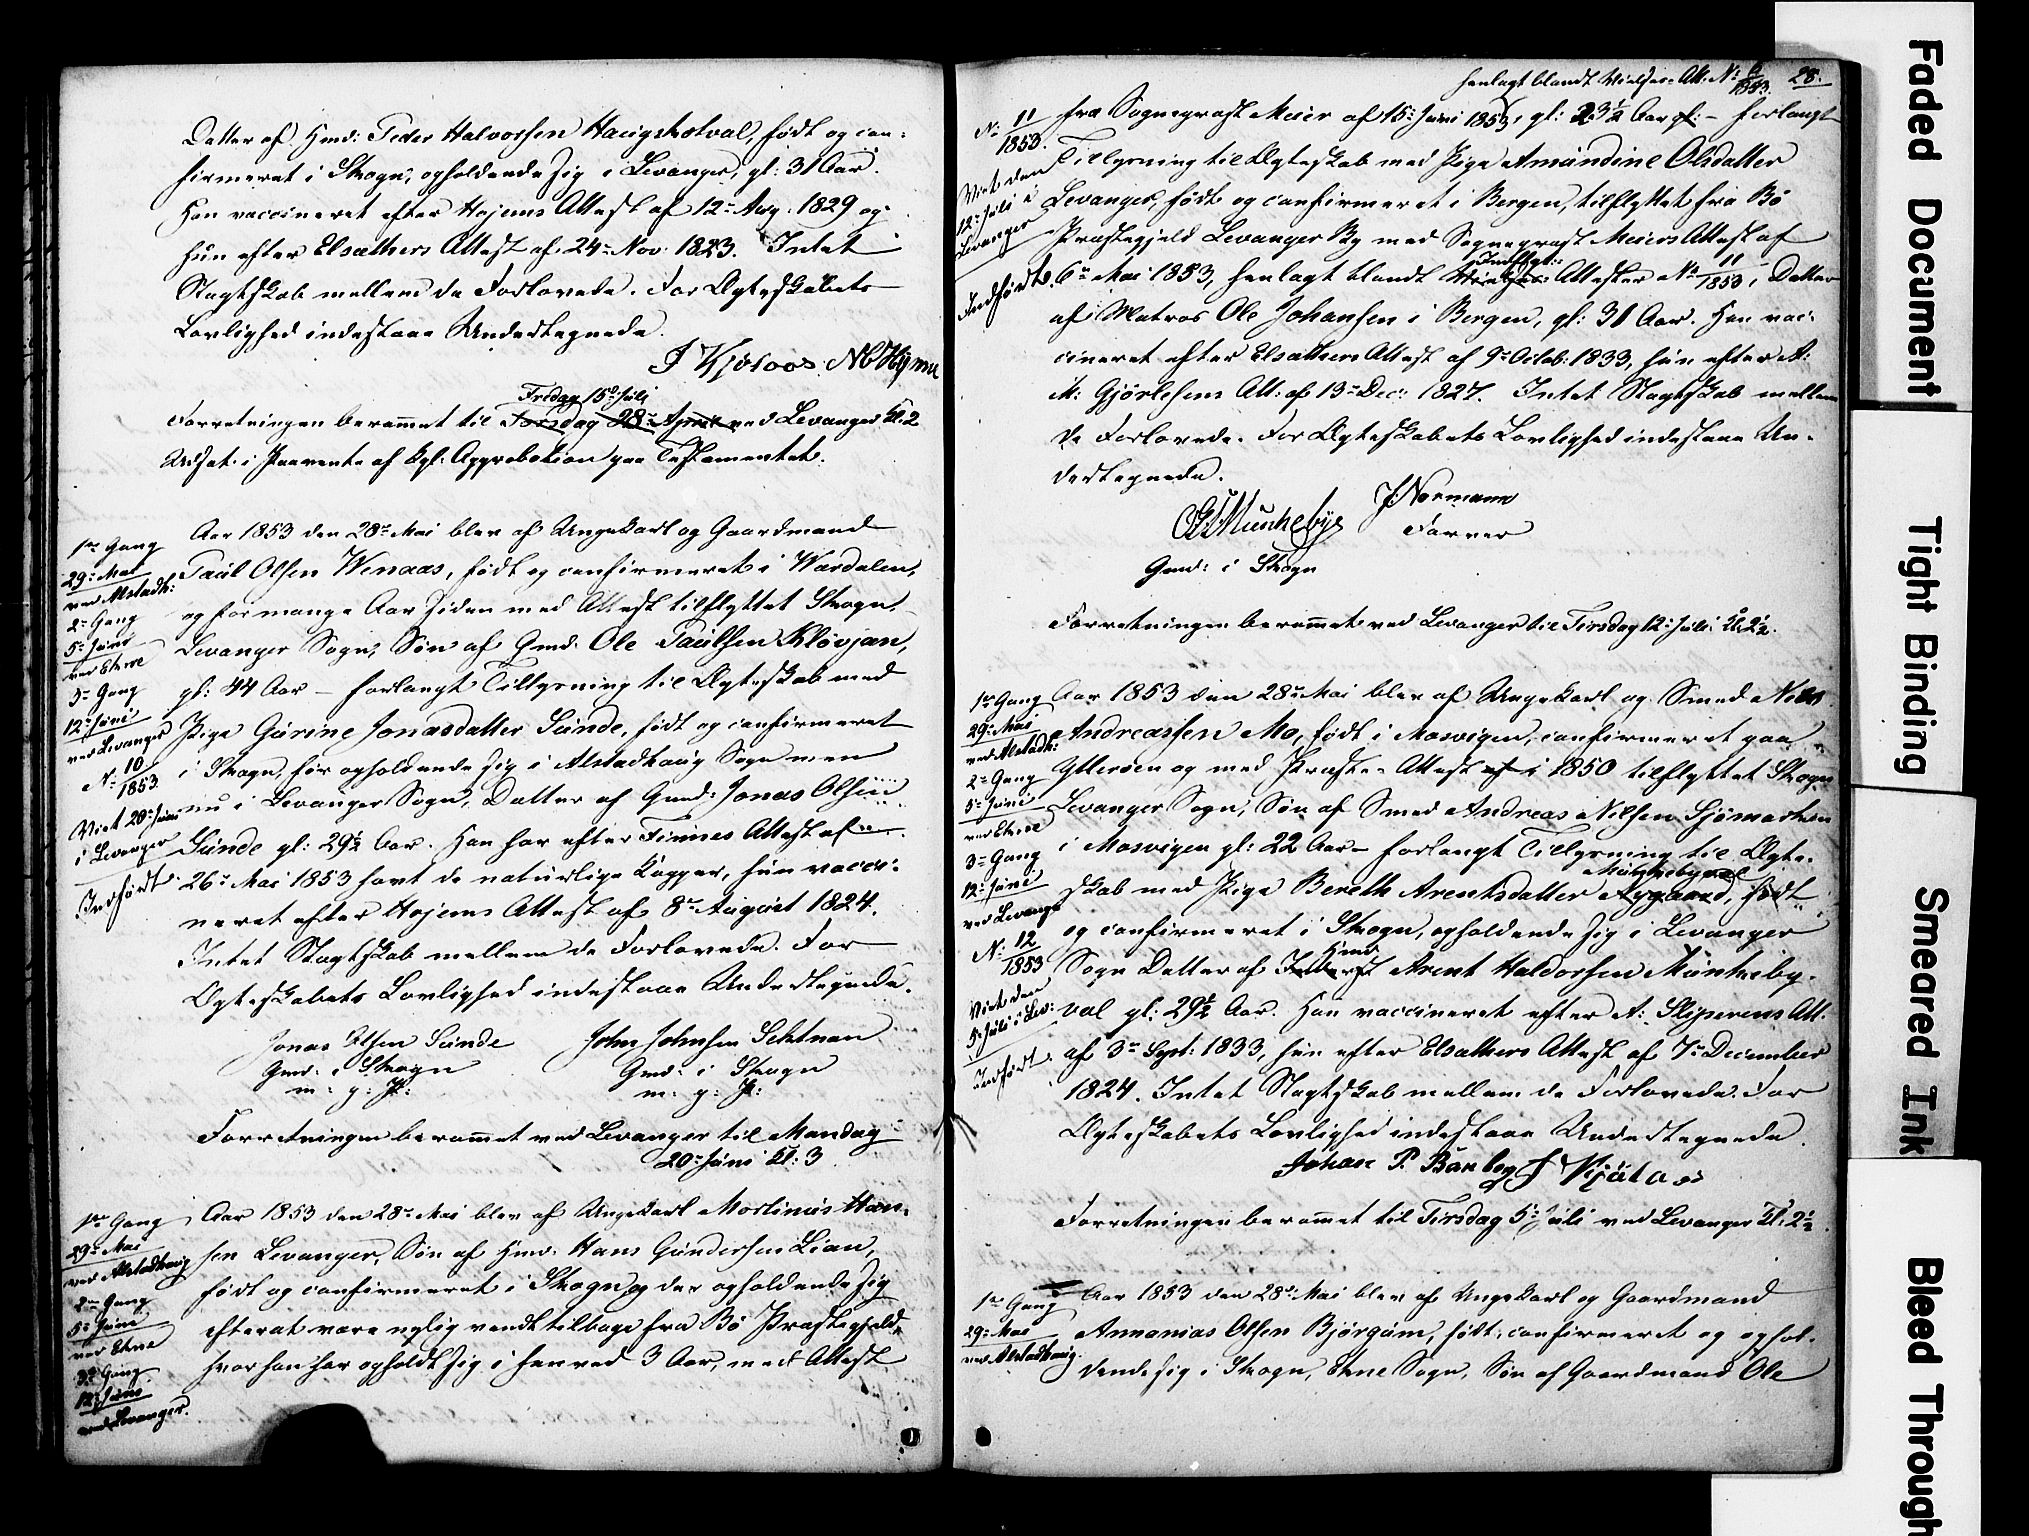 Datter af Hmd: Peder Halvorsen Haugskotval, født og con-
firmeret i Skogn, opholdende sig i Levanger, gl: 31 Aar.
Han vaccineret efter Hojems Attest af 12te Aug. 1829 og
hun efter Elsæthers Attest af 24de Nov. 1823. Intet
Slægtskab mellem de Forlovede. For Ægteskabets
Lovlighed indestaae Undertegnede.
Fredag 15de Juli
Forretningen berammet til Torsdag 28de April ved Levanger Kl. 2
Udsat i Paavente af kgl. Approbation paa Testamentet.
1ste Gang
29de Mai
ved Alstadh:
2den Gang
5te Juni
ved Ekne
3die Gang
12te Juni
ved Levanger
No 10/1853
Viet 20de Juni
i Levanger
Indført.
Aar 1853 den 28de Mai blev af Ungekarl og Gaardmand
Paul Olsen Wenaas, født og confirmeret i Værdalen,
og for mange Aar siden med Attest tilflyttet Skogn,
Levanger Sogn, Søn af Gmd. Ole Paulsen Kløvjan,
gl: 44 Aar – forlangt Tillysning til Ægteskab med
Pige Gurine Jonasdatter Sunde, født og confirmeret
i Skogn, før opholdende sig i Alstadhaug Sogn men
nu i Levanger Sogn, Datter af Gmd: Jonas Olsen
Sunde gl: 29½ Aar. Han har efter Finnes Attest af
26de Mai 1853 havt de naturlige Kopper, hun vacci-
neret efter Hojems Attest af 8de August 1824.
Intet Slægtskab mellem de Forlovede. For
Ægteskabets Lovlighed indestaae Undertegnede.
Jonas Olsen Sunde John Johnsen
Gmd: i Skogn Gmd: i Skogn
m: p: P: m: p: P:
Forretningen berammet ved Levanger til Mandag
20de Juni Kl: 3
1ste Gang
29de Mai
ved Alstadhaug
2den Gang
5te Juni
ved Ekne
3die Gang
12te Juni
ved Levanger.
Aar 1853 den 28de Mai blev af Ungekarl Martinus Han-
sen Levanger, Søn af Hmd. Hans Gundersen Lian,
født og confirmeret i Skogn og der opholdende sig
efterat være nylig vendt tilbage fra Bø Præstegjeld,
hvor han har opholdt sig i henved 3 Aar, med Attest
henlagt blandt Vielses-Att. No 6/1853. 28.
No 11/1853.
Viet den
12te Juli i
Levanger
Indført.
fra Sognepræst Meier af 15de Juni 1853, gl: 23½ Aar gl: – forlangt
Tillysning til Ægteskab med Pige Amundine Olsdatter
Levanger, født og confirmeret i Bergen, tilflyttet fra Bø
Præstegjeld Levanger By med Sognepræst Meiers Attest af
Indflyt:
6te Mai 1853, henlagt blandt Vielses Attester No 11/1853, Datter
af Matros Ole Johansen i Bergen, gl: 31 Aar. Han vac-
cineret efter Elsæthers Attest af 9de Octob: 1833, hun efter A:
M: Gjørlesens Att: af 13de Dec: 1827. Intet Slægtskab mellem
de Forlovede. For Ægteskabets Lovlighed indestaae Un-
dertegnede.
Munkebye J. Normann
Gmd: i Skogn Farver
Forretningen berammet ved Levanger til Tirsdag 12te Juli Kl. 2½.
1ste Gang
29de Mai
ved Alstadh:
2den Gang
5te Juni
ved Ekne
3die Gang
12te Juni
ved Levanger
No 12/1853
Viet den
5te Juli i Lev:
Indført.
Aar 1853 den 28de Mai blev af Ungekarl og Smed Nils
Andreassen Mo, født i Mosvigen, confirmeret paa
Ytterøen og med Præste-Attest af i 1850 tilflyttet Skogn
Levanger Sogn, Søn af Smed Andreas Nilsen Sjømarken
i Mosvigen gl: 22 Aar – forlangt Tillysning til Ægte-
Munkebyval
skab med Pige Bereth Arentsdatter Nygaard, født
og confirmeret i Skogn, opholdende sig i Levanger
Hmd
Sogn Datter af Inderst Arent Haldorsen Munkeby-
val gl: 29½ Aar. Han vaccineret efter A: Skjerens Att.
af 3de Sept: 1833, hun efter Elsæthers Attest af 7de December
1824. Intet Slægtskab mellem de Forlovede. For
Ægteskabets Lovlighed indestaae Undertegnede.
Johan P.
Forretningen berammet til Tirsdag 5te Juli ved Levanger Kl. 2½
1ste Gang
29de Mai
ved Alstadhaug.
Aar 1853 den 28de Mai blev af Ungekarl og Gaardmand
Annanias Olsen Bjørgum, født, confirmeret og ophol-
dende sig i Skogn, Ekne Sogn, Søn af Gaardmand Ole
Faded Document
Tight Binding
Smeared Ink
Bleed Through